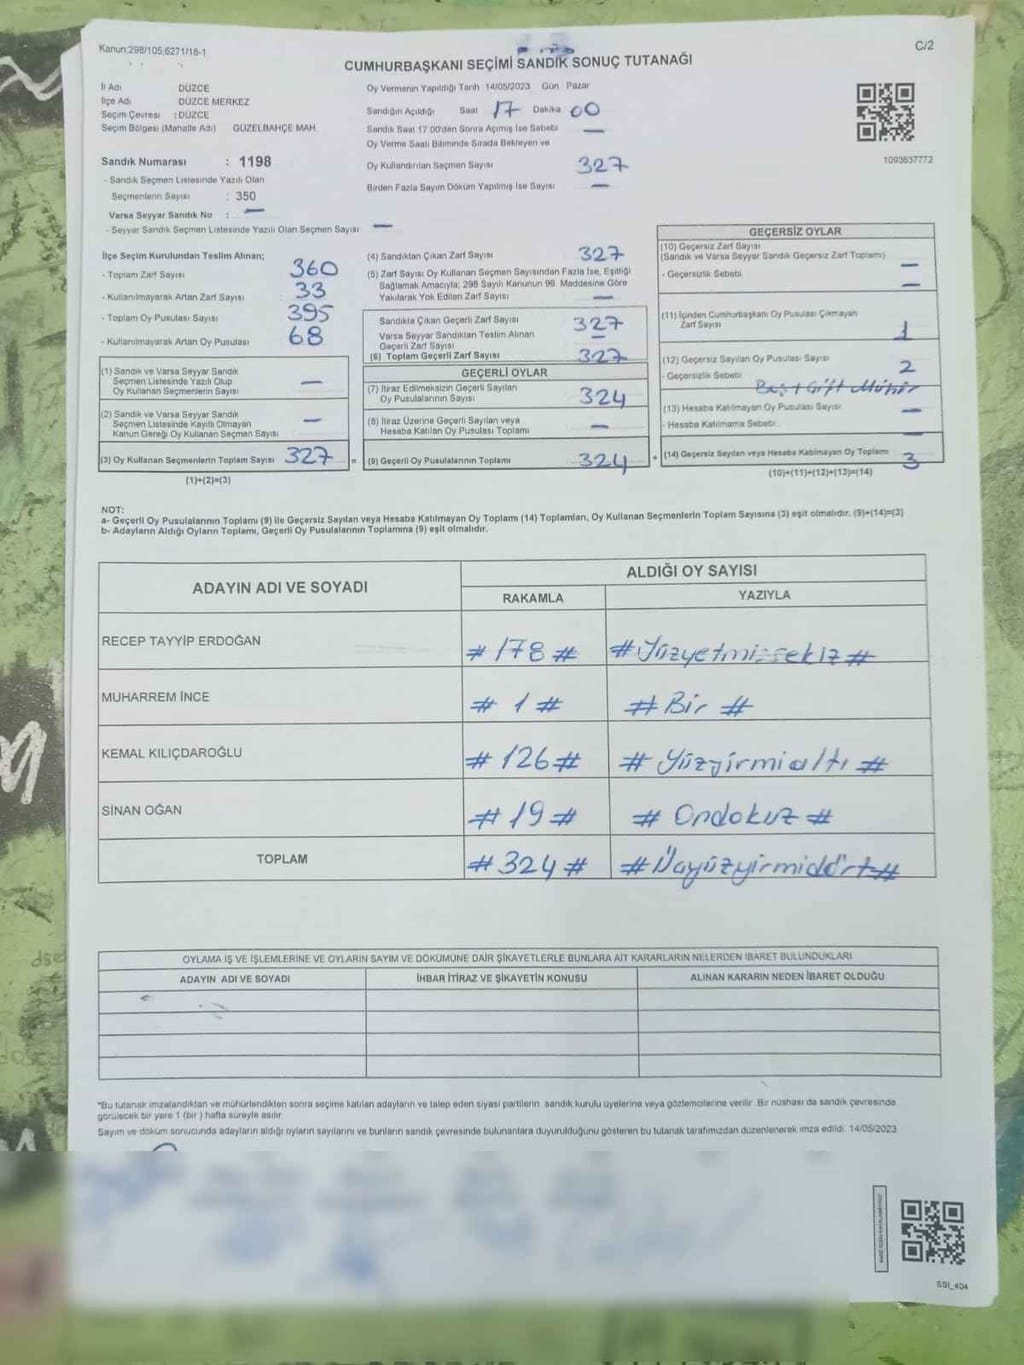 Kanun:298/105,6271/18-1
C/2
CUMHURBAŞKANI SEÇİMİ SANDIK SONUÇ TUTANAĞI
İl Adı DÜZCE
İlçe Adı DÜZCE MERKEZ
Seçim Çevresi : DÜZCE
Seçim Bölgesi (Mahalle Adı) GÜZELBAHÇE MAH.
Oy Vermenin Yapıldığı Tarih 14/05/2023 Gün Pazar
Sandığın Açıldığı Saat 17 Dakika 00
Sandık Saat 17:00'den Sonra Açılmış İse Sebebi —
Oy Verme Saati Bitiminde Sırada Bekleyen ve
Oy Kullandırılan Seçmen Sayısı 327
Birden Fazla Sayım Döküm Yapılmış İse Sayısı —
1093637772
Sandık Numarası : 1198
- Sandık Seçmen Listesinde Yazılı Olan
Seçmenlerin Sayısı : 350
Varsa Seyyar Sandık No : —
- Seyyar Sandık Seçmen Listesinde Yazılı Olan Seçmen Sayısı —
İlçe Seçim Kurulundan Teslim Alınan;
- Toplam Zarf Sayısı 360
- Kullanılmayarak Artan Zarf Sayısı 33
- Toplam Oy Pusulası Sayısı 395
- Kullanılmayarak Artan Oy Pusulası 68
(1) Sandık ve Varsa Seyyar Sandık
Seçmen Listesinde Yazılı Olup
Oy Kullanan Seçmenlerin Sayısı —
(2) Sandık ve Varsa Seyyar Sandık
Seçmen Listesinde Kayıtlı Olmayan
Kanun Gereği Oy Kullanan Seçmen Sayısı —
(3) Oy Kullanan Seçmenlerin Toplam Sayısı 327 =
(1)+(2)=(3)
(4) Sandıktan Çıkan Zarf Sayısı 327
(5) Zarf Sayısı Oy Kullanan Seçmen Sayısından Fazla İse, Eşitliği
Sağlamak Amacıyla; 298 Sayılı Kanunun 98. Maddesine Göre
Yakılarak Yok Edilen Zarf Sayısı —
Sandıkta Çıkan Geçerli Zarf Sayısı 327
Varsa Seyyar Sandıktan Teslim Alınan
Geçerli Zarf Sayısı —
(6) Toplam Geçerli Zarf Sayısı 327
GEÇERLİ OYLAR
(7) İtiraz Edilmeksizin Geçerli Sayılan
Oy Pusulalarının Sayısı 324
(8) İtiraz Üzerine Geçerli Sayılan veya
Hesaba Katılan Oy Pusulası Toplamı —
(9) Geçerli Oy Pusulalarının Toplamı 324 +
GEÇERSİZ OYLAR
(10) Geçersiz Zarf Sayısı
(Sandık ve Varsa Seyyar Sandık Geçersiz Zarf Toplamı) —
- Geçersizlik Sebebi —
(11) İçinden Cumhurbaşkanı Oy Pusulası Çıkmayan
Zarf Sayısı 1
(12) Geçersiz Sayılan Oy Pusulası Sayısı 2
- Geçersizlik Sebebi Çift Mühür
(13) Hesaba Katılmayan Oy Pusulası Sayısı —
- Hesaba Katılmama Sebebi —
(14) Geçersiz Sayılan veya Hesaba Katılmayan Oy Toplamı 3
(10)+(11)+(12)+(13)=(14)
NOT:
a- Geçerli Oy Pusulalarının Toplamı (9) ile Geçersiz Sayılan veya Hesaba Katılmayan Oy Toplamı (14) Toplamları, Oy Kullanan Seçmenlerin Toplam Sayısına (3) eşit olmalıdır. (9)+(14)=(3)
b- Adayların Aldığı Oyların Toplamı, Geçerli Oy Pusulalarının Toplamına (9) eşit olmalıdır.
ADAYIN ADI VE SOYADI
ALDIĞI OY SAYISI
RAKAMLA YAZIYLA
RECEP TAYYİP ERDOĞAN # 178 # # Yüzyetmişsekiz #
MUHARREM İNCE # 1 # # Bir #
KEMAL KILIÇDAROĞLU # 126 # # Yüzyirmialtı #
SİNAN OĞAN # 19 # # Ondokuz #
TOPLAM # 324 # # Üçyüzyirmidört #
OYLAMA İŞ VE İŞLEMLERİNE VE OYLARIN SAYIM VE DÖKÜMÜNE DAİR ŞİKAYETLERLE BUNLARA AİT KARARLARIN NELERDEN İBARET BULUNDUKLARI
ADAYIN ADI VE SOYADI İHBAR İTİRAZ VE ŞİKAYETİN KONUSU ALINAN KARARIN NEDEN İBARET OLDUĞU
*Bu tutanak imzalandıktan ve mühürlendikten sonra seçime katılan adayların ve talep eden siyasi partilerin sandık kurulu üyelerine veya gözlemcilerine verilir. Bir nüshası da sandık çevresinde
görülecek bir yere 1 (bir ) hafta süreyle asılır.
Sayım ve döküm sonucunda adayların aldığı oyların sayılarını ve bunların sandık çevresinde bulunanlara duyurulduğunu gösteren bu tutanak tarafımızdan düzenlenerek imza edildi. 14/05/2023
SSI_404